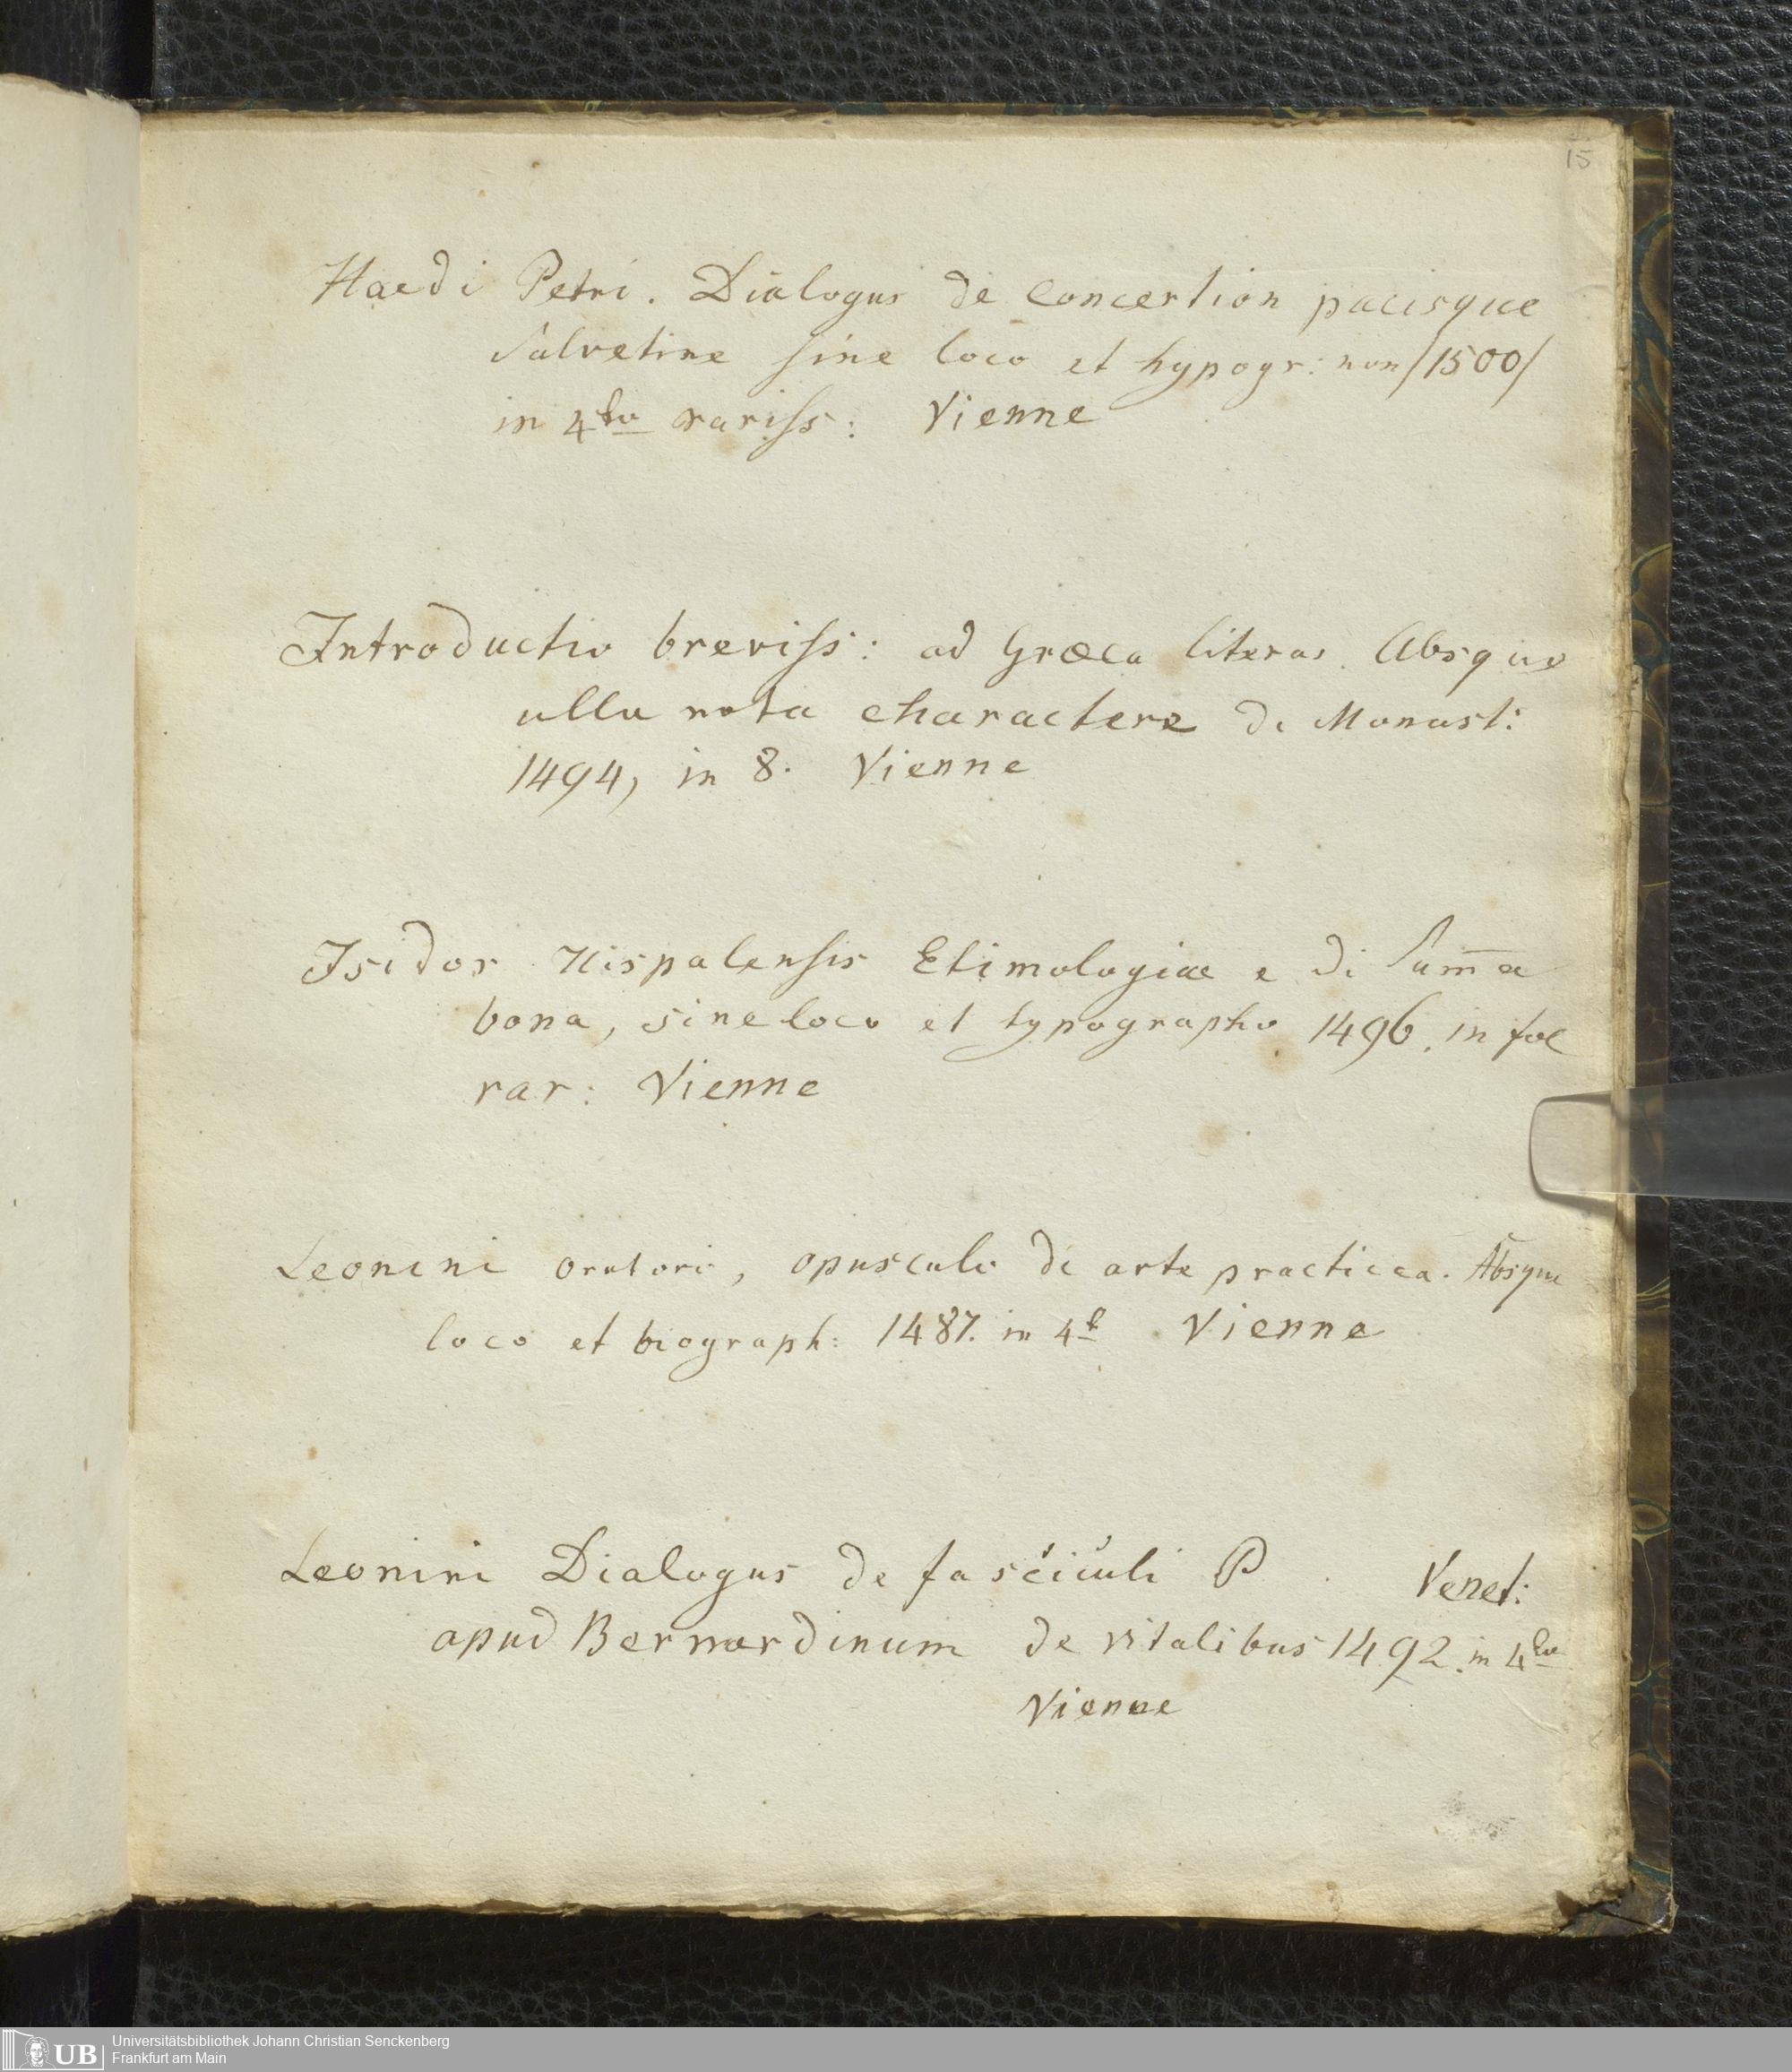 15
Haedi Petri. Dialogus de concertion pacisque
Salvetine sine loco et hypogr: non /1500/
in 4to rariss: Vienne
Introductio breviss: ad Græca literas. Absque
ulla nota charactere di Monast:
1494, in 8. Vienne
Isidor Hispalensis Etimologiae e di Sum̄a
bona, sine loco et typographo 1496. in fol
rar: Vienne
Leonini oratori, opusculo de arte practicea. Absque
loco et biograph: 1487. in 4t Vienne
Leonini Dialogus de fasciculi P Venet:
apud Bernardinum de vitalibus 1492. in 4to
Vienne
UB Universitätsbibliothek Johann Christian Senckenberg
Frankfurt am Main